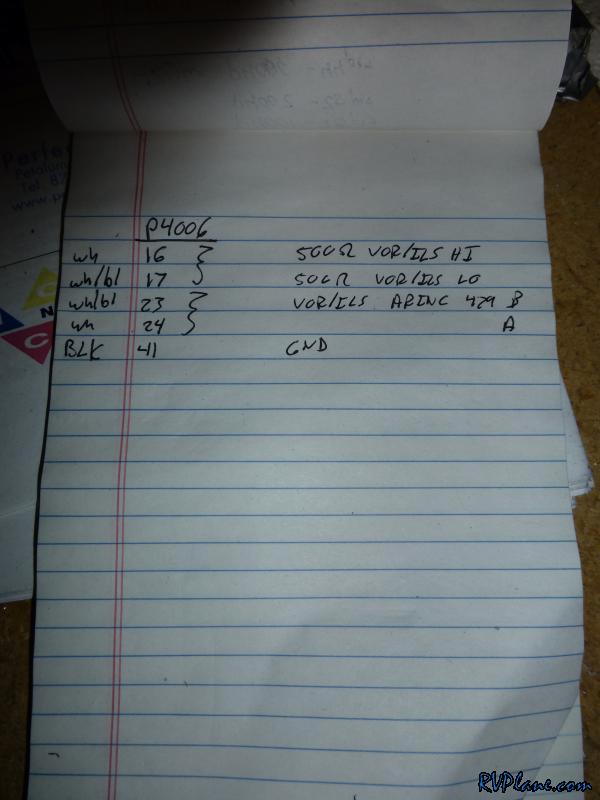 Perfe
Petalum
Tel. 82
www.p
N
C
P4006
wh 16 } 500Ω VOR/ILS HI
wh/bl 17 500Ω VOR/ILS LO
wh/bl 23 } VOR/ILS ARINC 429 B
wh 24 A
BLK 41 GND
RVPlane.com